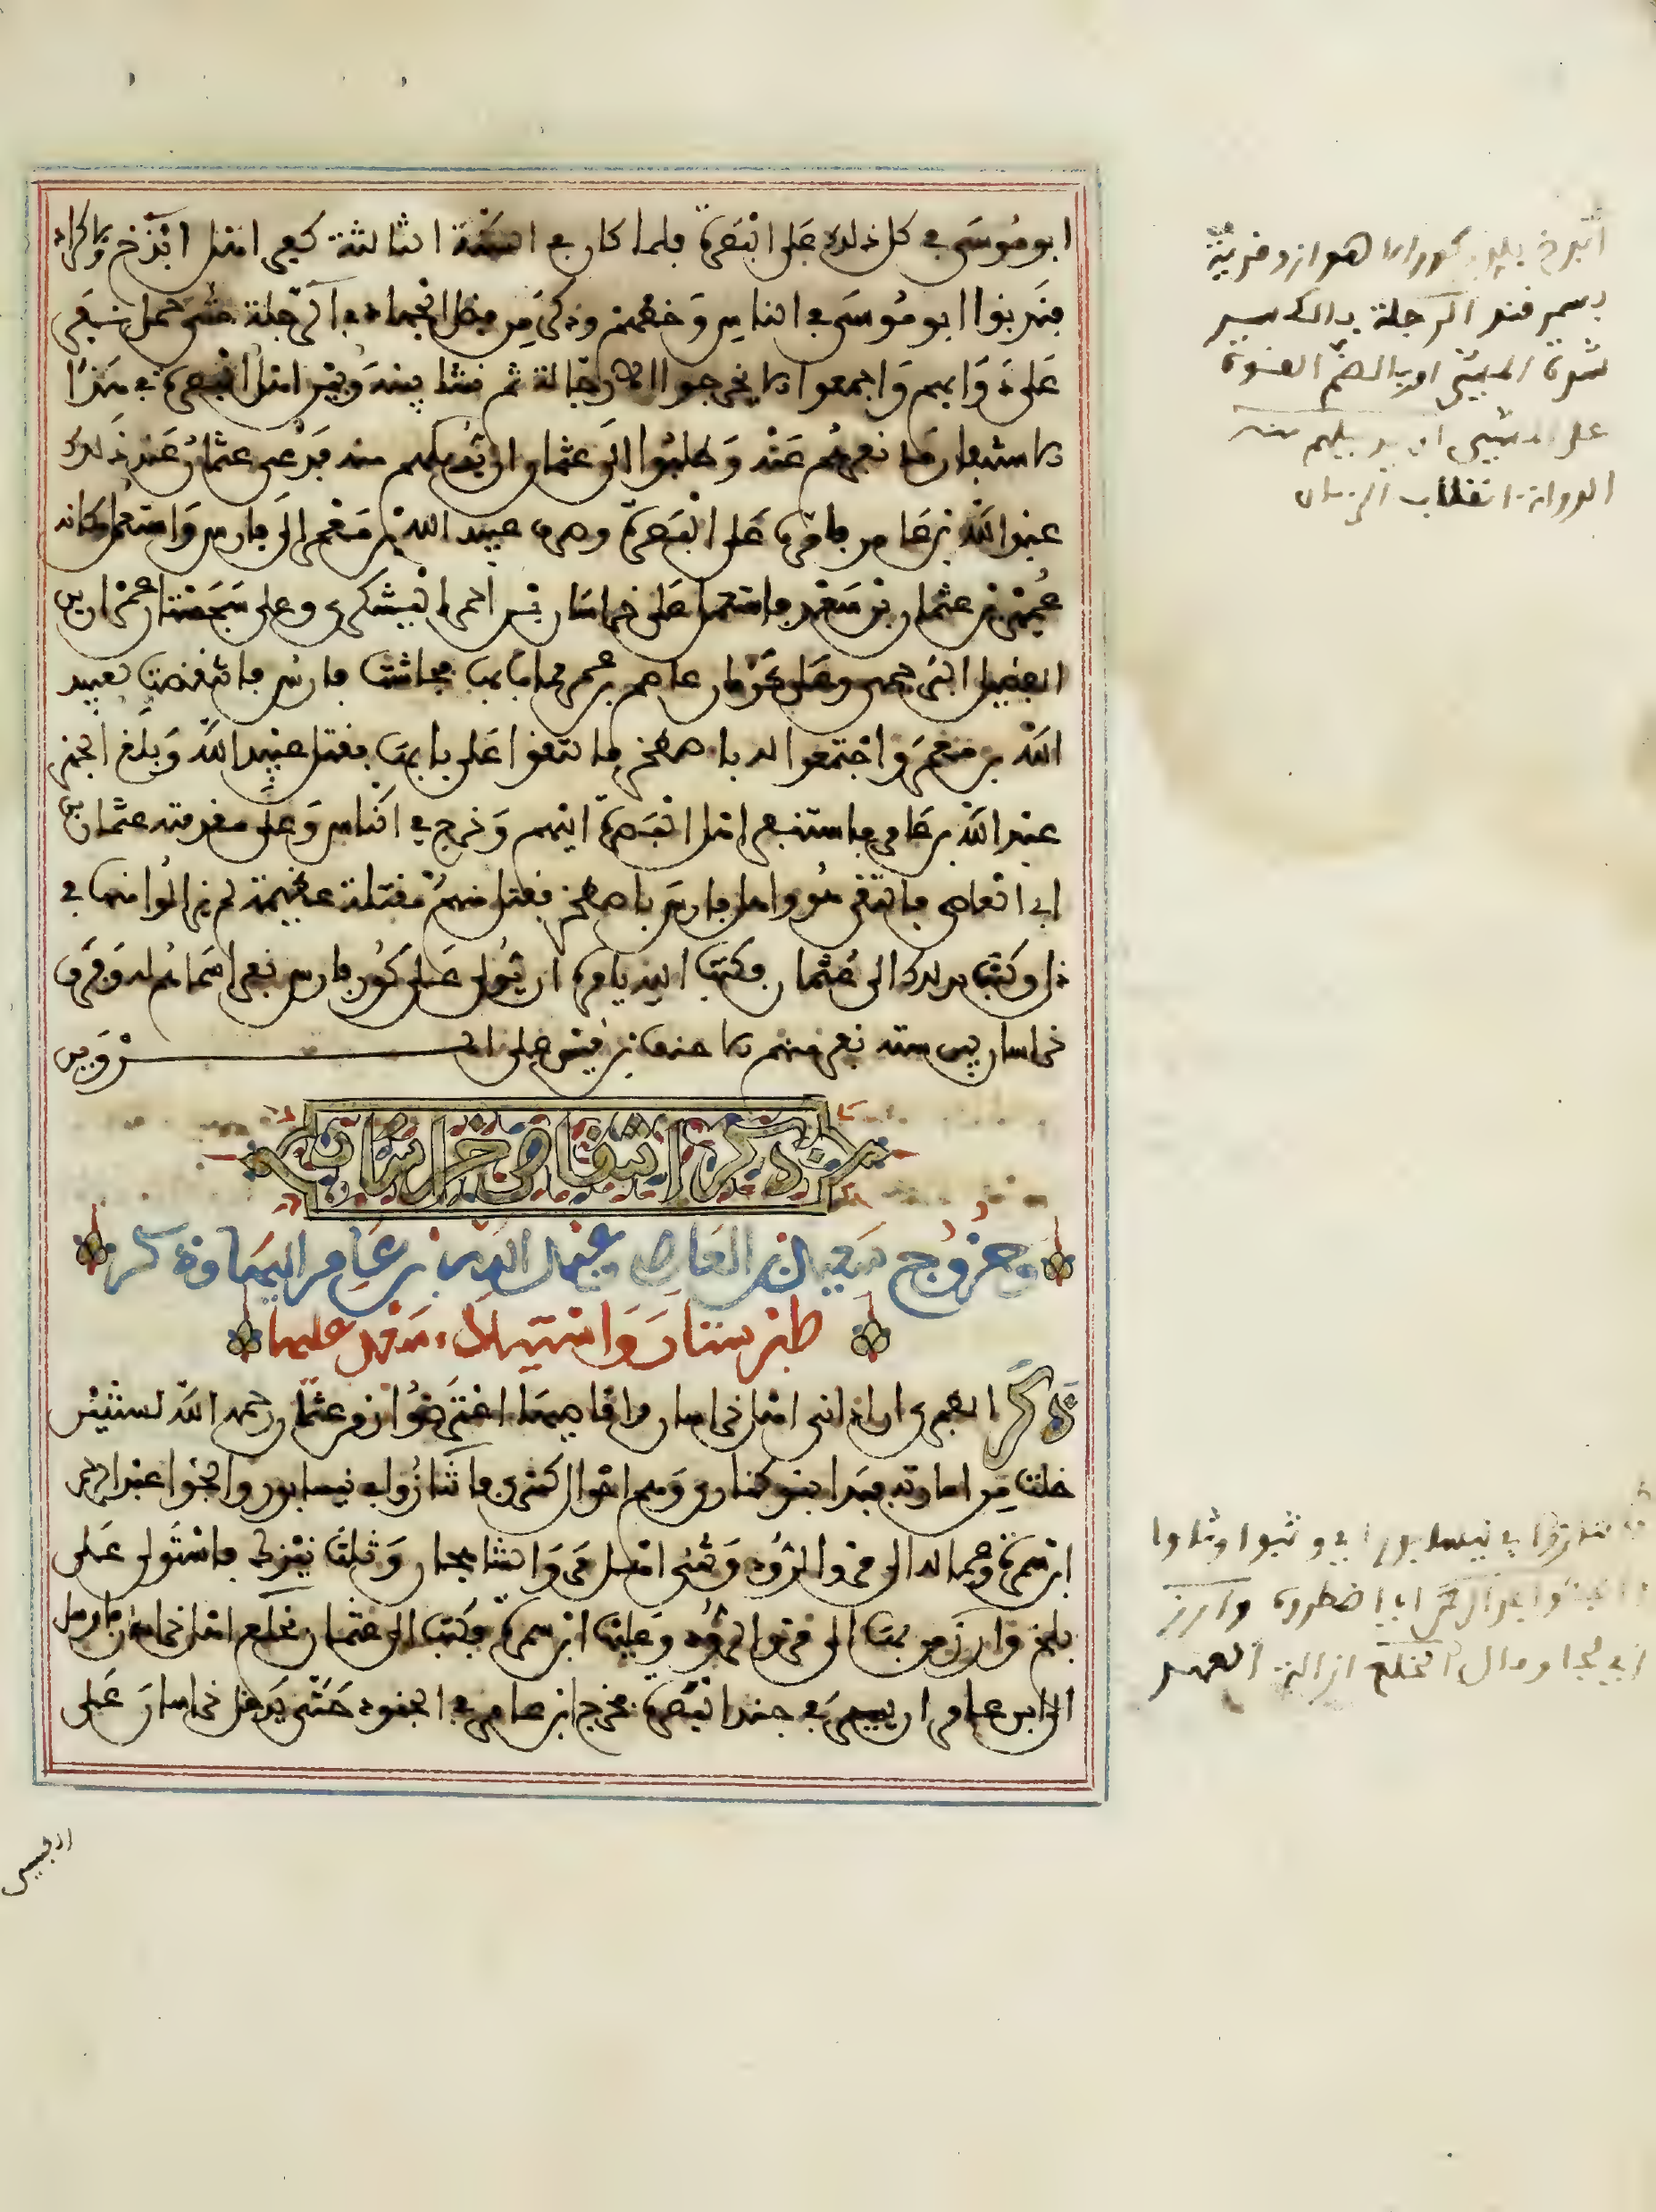 ابو موسى في كل ذلك على البصرة فلما كان في السنة الثالثة كفر اهل ايذج والاكراد
فندبوا ابو موسى في الناس وحضهم وذكر من فضل الجهاد في الرجلة حتى حمل نفر
على دوابهم واجمعوا ان يخرجوا الا رجالة ثم نشا بينه وبين اهل البصرة في هذا
الاستنفار ما نفرهم عنه وطلبوا الى عثمان ان يبدلهم منه فدعى عثمان عند ذلك
عبد الله بن عامر فامره على البصرة وصرف عبيد الله بن معمر الى فارس واستعمل مكانه
عمير بن عثمان بن سعد فاستعمل على خراسان بن احمر اليشكري وعلى سجستان عمران بن
الفضيل البرجمي وعلى كرمان عاصم بن عمر فمات بها فجاشت فارس فانتقضت بعبيد
الله بن معمر واجتمعوا له باصطخر فالتقوا على بابها فقتل عبيد الله وبلغ الخبر
عبد الله بن عامر فاستنفر اهل البصرة اليهم وخرج في الناس وعلى مقدمته عثمان بن
ابي العاصي فالتقى هو واهل فارس باصطخر فقتل منهم مقتلة عظيمة لم يزالوا منها في
ذل وكتب بذلك الى عثمان فكتب اليه يامره ان يولى على كور فارس نفرا سماهم له وفرق
خراسان بين ستة نفر منهم الاحنف بن قيس على المروين
ذكر انتقاض خراسان
وخروج سعيد بن العاص وعبد الله بن عامر اليها وذكر
طبرستان واستيلاء سعيد عليها
ذكر الطبري ان اداني اهل خراسان واقاصيها اعترضوا زمن عثمان رحمه الله لسنتين
خلتا من امارته فبدا بنو كنارى وهم اخوال كسرى فانتزوا في نيسابور والجوا عبد الرحمن
ابن سمرة وعماله الى مرو الروذ وثنى اهل مرو الشاهجان وثلث نيزك فاستولى على
بلخ وارز من بها الى مرو الروذ وعليها ابن سمرة فكتب الى عثمان بخلع اهل خراسان فارسل
الى ابن عامر ان يسير في جند البصرة فخرج ابن عامر في الجنود حتى يدخل خراسان على
ايذج بلد بكور الاهواز وقرية
بسمرقند الرجلة بالكسر
شدة المشي او بالضم القوة
على المشي
انقلاب الزمان
انتزوا في نيسابور اي وثبوا
والجوا عبد الرحمن اي اضطروه وارز
اي لجا وقال الخلع ازالة العهد